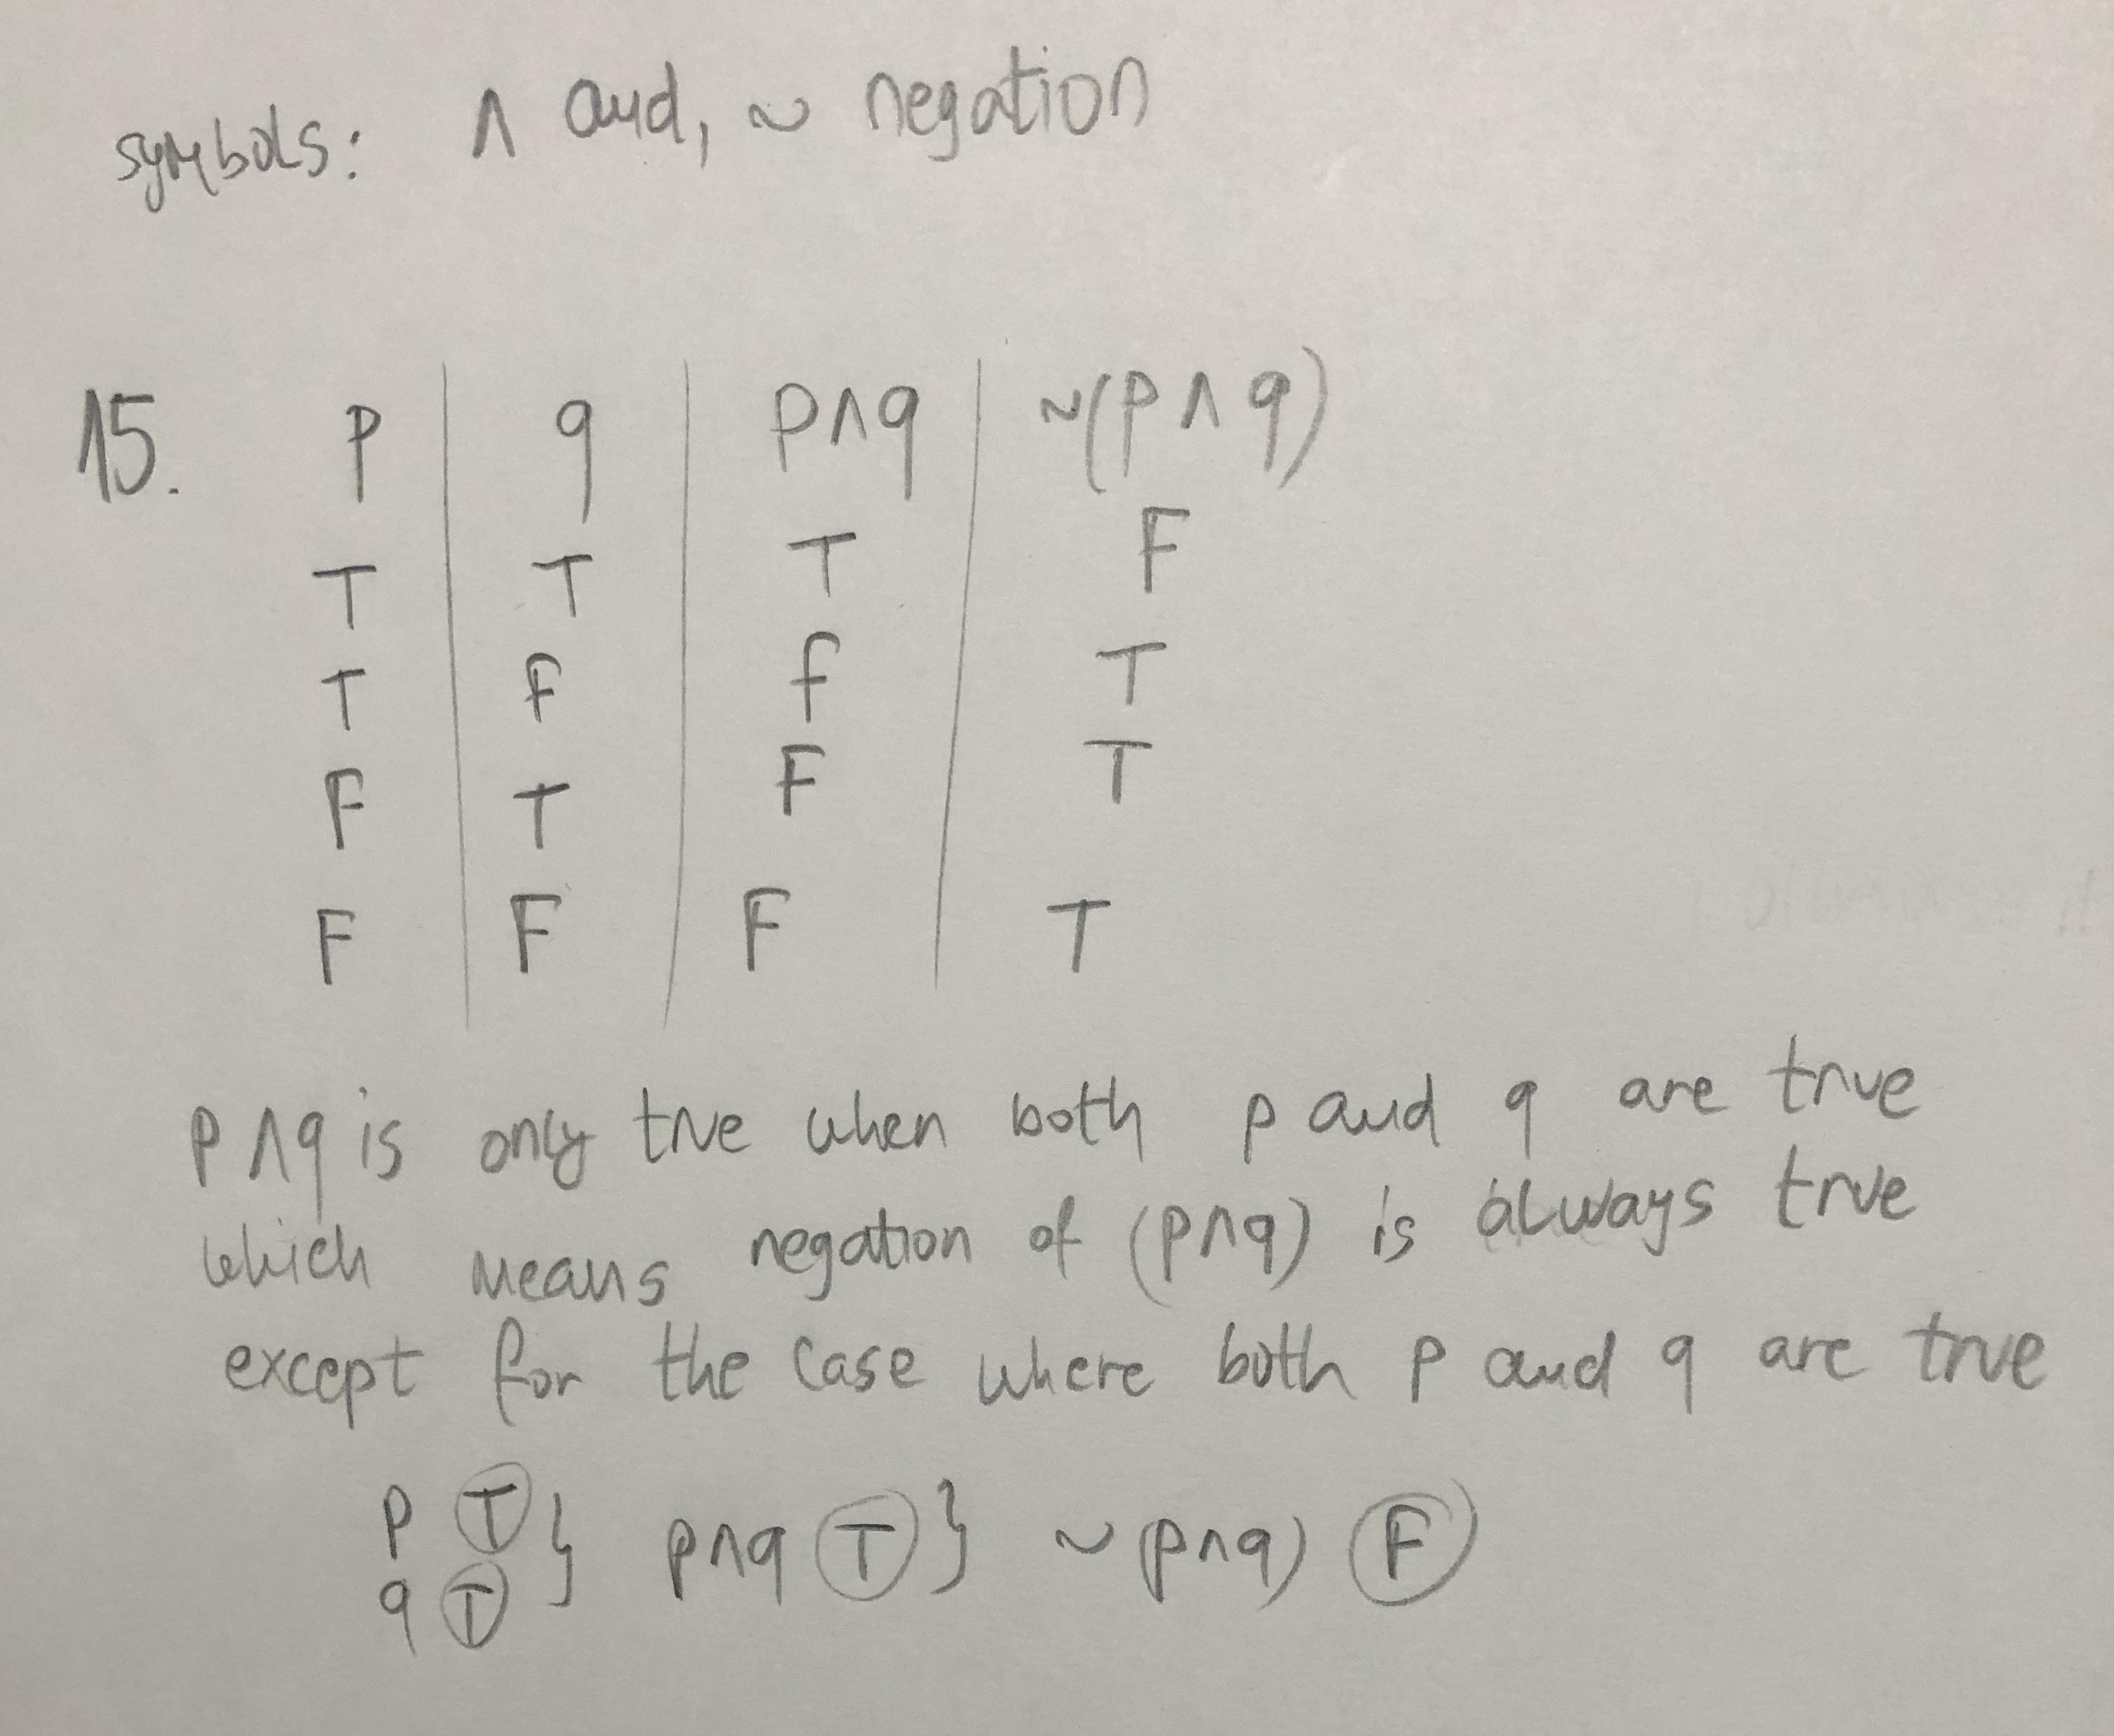 symbols: ∧ and, ~ negation
15. p | q | p∧q | ~(p∧q)
T T T F
T F f T
F T F T
F F F T
p∧q is only true when both p and q are true
which means negation of (p∧q) is always true
except for the case where both p and q are true
p T } p∧q T } ~(p∧q) F
q T